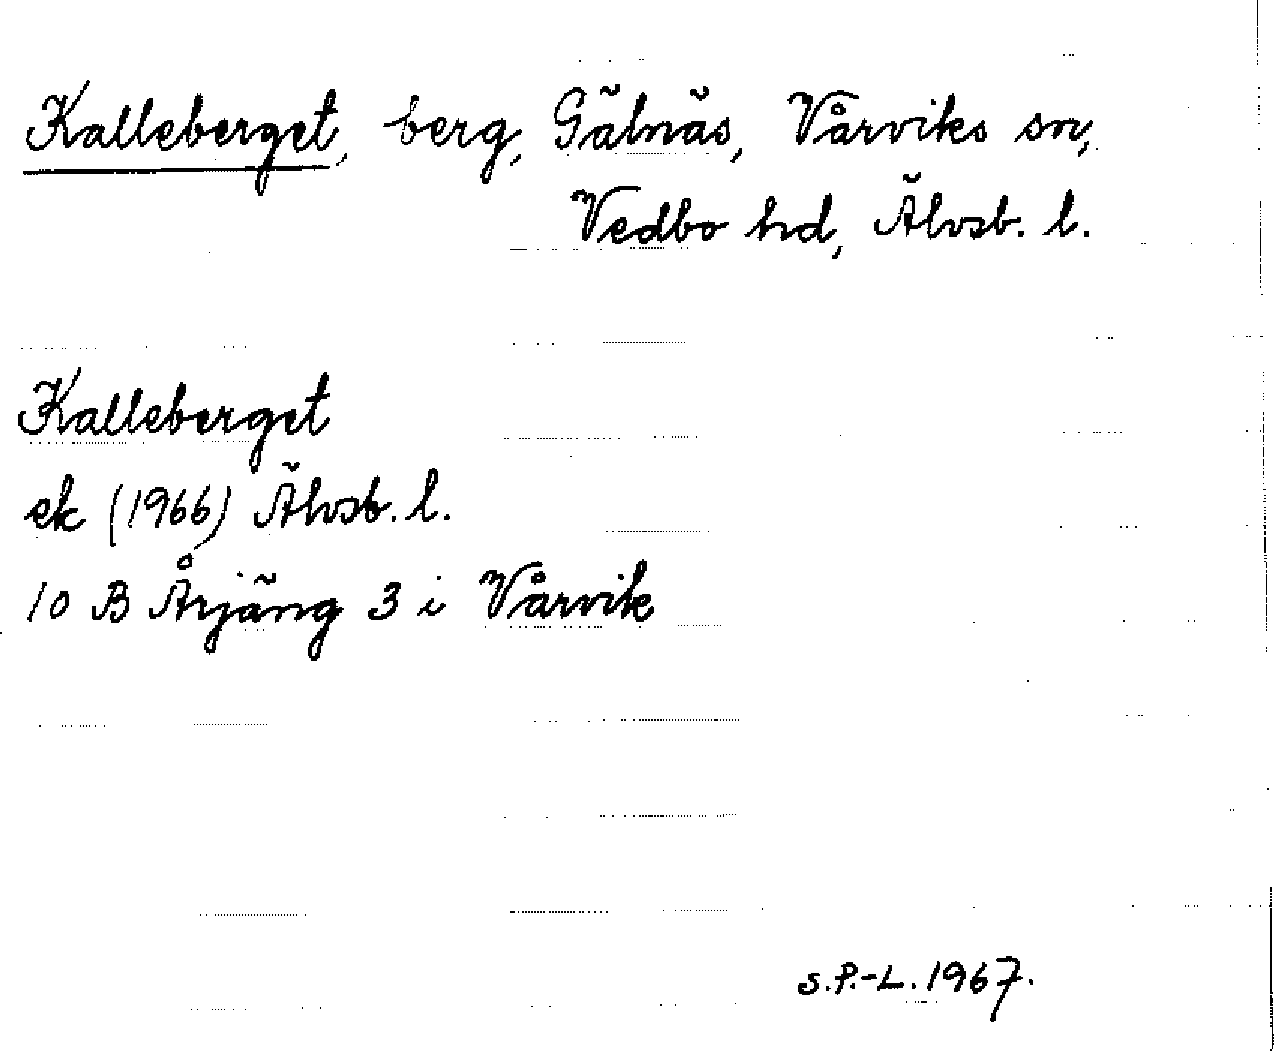 Kalleberget, berg, Gälnäs, Vårviks sn,
Vedbo hd, Älvsb. l.
Kalleberget
ek (1966) Älvsb. l.
10 B Årjäng 3 i Vårvik
S.P.-L. 1967.